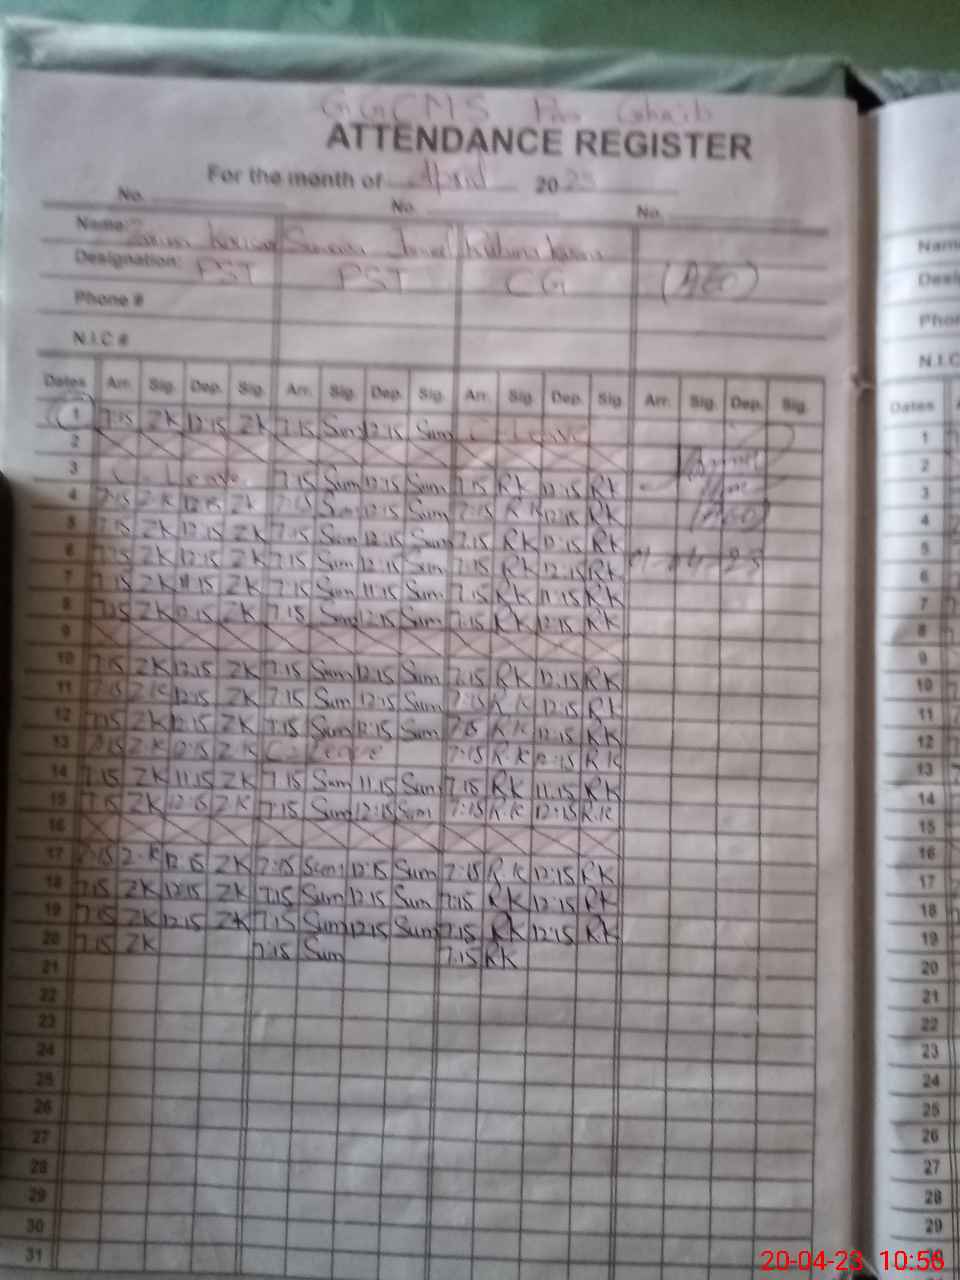 GGCMS
ATTENDANCE REGISTER
For the month of April 2023
No. No. No.
Name:
Designation: PST PST CG (AEO)
Phone #
N.I.C #
Dates Arr. Sig. Dep. Sig. Arr. Sig. Dep. Sig. Arr. Sig. Dep. Sig. Arr. Sig. Dep. Sig.
1 7:15 ZK 12:15 ZK 7:15 Sum 12:15 Sum C. Leave
2
3 C. Leave 7:15 Sum 12:15 Sum 7:15 RK 12:15 RK
4 7:15 ZK 12:15 ZK 7:15 Sum 12:15 Sum 7:15 RK 12:15 RK
(AEO)
5 7:15 ZK 12:15 ZK 7:15 Sum 12:15 Sum 7:15 RK 12:15 RK
6 7:15 ZK 12:15 ZK 7:15 Sum 12:15 Sum 7:15 RK 12:15 RK
7 7:15 ZK 11:15 ZK 7:15 Sum 11:15 Sum 7:15 RK 11:15 RK
8 7:15 ZK 12:15 ZK 7:15 Sum 12:15 Sum 7:15 RK 12:15 RK
9
10 7:15 ZK 12:15 ZK 7:15 Sum 12:15 Sum 7:15 RK 12:15 RK
11 7:15 ZK 12:15 ZK 7:15 Sum 12:15 Sum 7:15 RK 12:15 RK
12 7:15 ZK 12:15 ZK 7:15 Sum 12:15 Sum 7:15 RK 12:15 RK
13 7:15 ZK 12:15 ZK C. Leave 7:15 R.K 12:15 RK
14 7:15 ZK 11:15 ZK 7:15 Sum 11:15 Sum 7:15 RK 11:15 RK
15 7:15 ZK 12:15 ZK 7:15 Sum 12:15 Sum 7:15 R.K 12:15 R.K
16
17 7:15 Z.K 12:15 ZK 7:15 Sum 12:15 Sum 7:15 R.K 12:15 RK
18 7:15 ZK 12:15 ZK 7:15 Sum 12:15 Sum 7:15 RK 12:15 RK
19 7:15 ZK 12:15 ZK 7:15 Sum 12:15 Sum 7:15 RK 12:15 RK
20 7:15 ZK 7:15 Sum 7:15 RK
21
22
23
24
25
26
27
28
29
30
31
Name
N.I.C
Dates
1
2
3
4
5
6
7
8
9
10
11
12
13
14
15
16
17
18
19
20
21
22
23
24
25
26
27
28
29
20-04-23 10:56